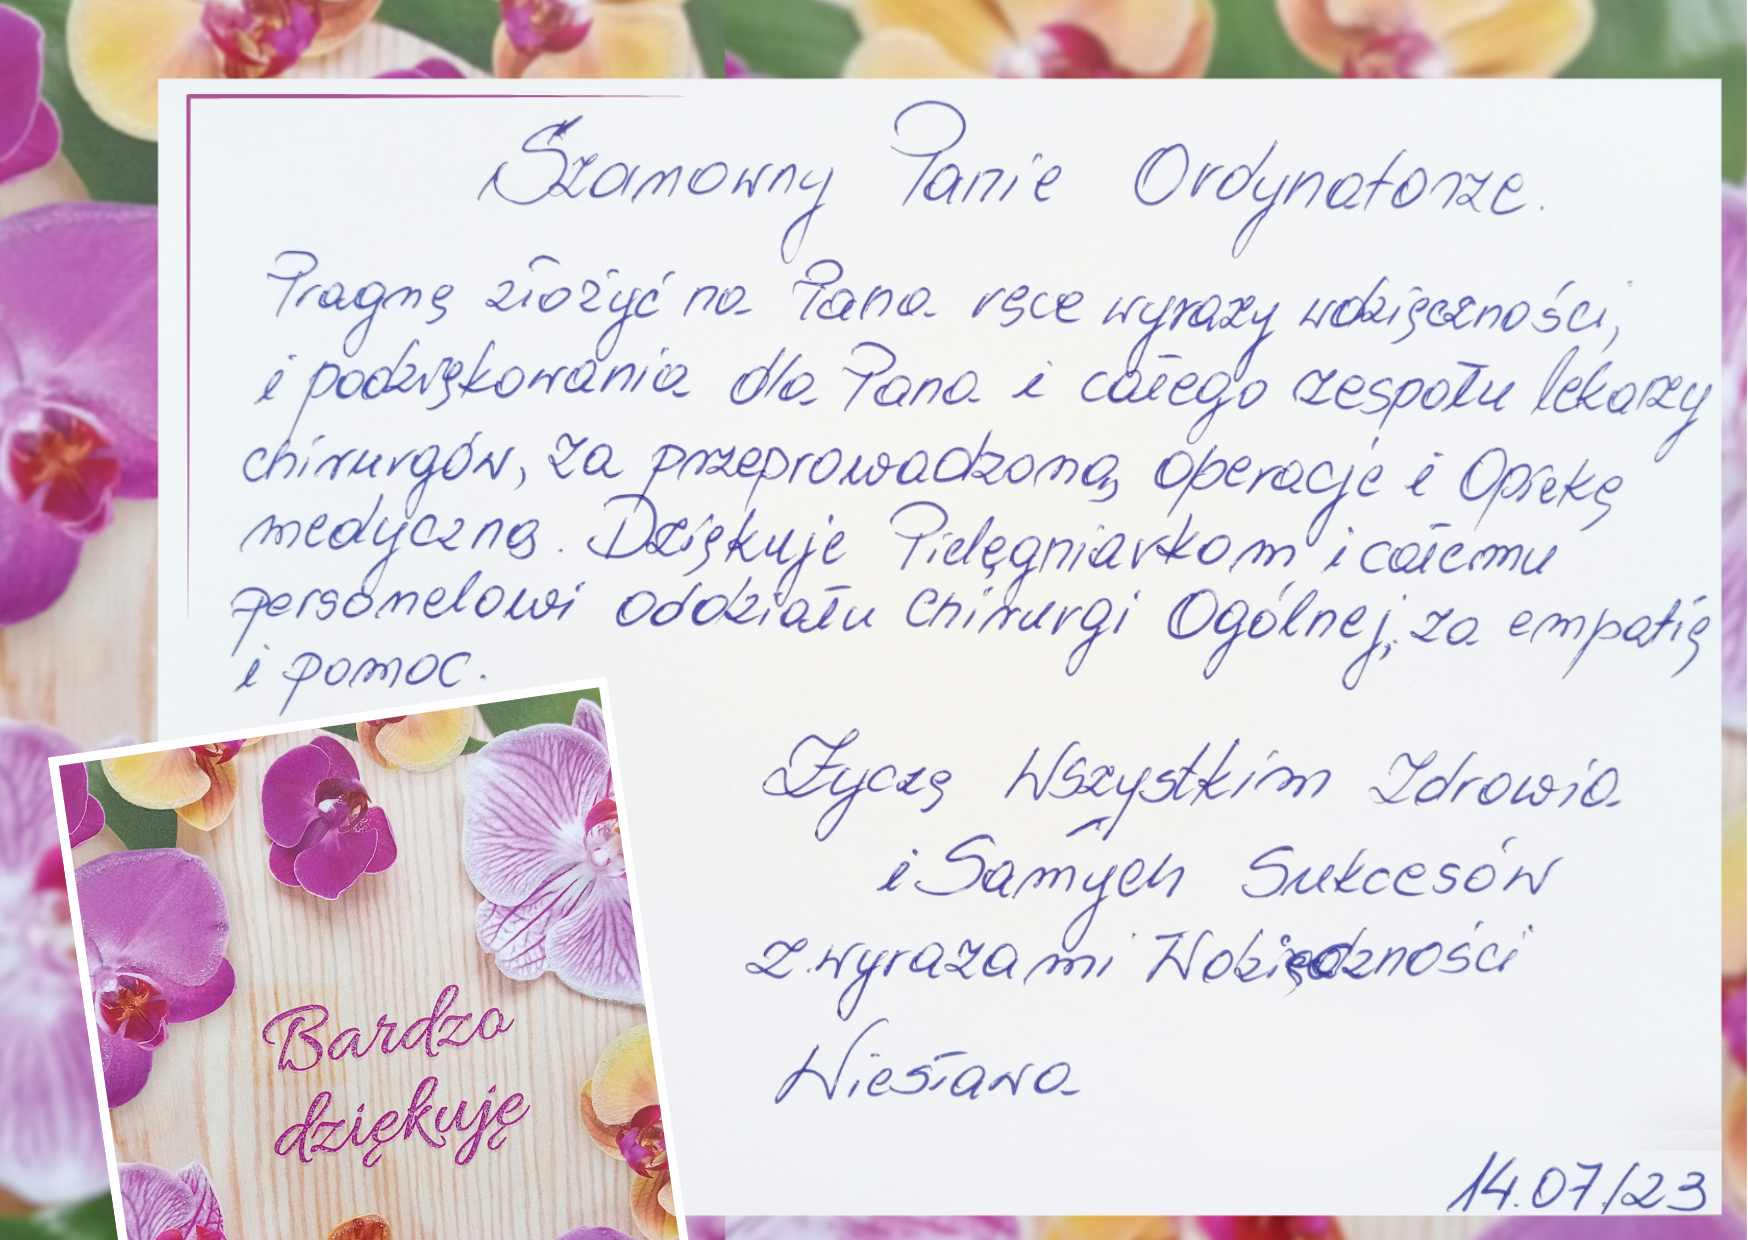 Szanowny Panie Ordynatorze.
Pragnę złożyć na Pana ręce wyrazy wdzięczności,
i podziękowania dla Pana i całego zespołu lekarzy
chirurgów, za przeprowadzoną operacje i Opiekę
medyczną. Dziękuje Pielęgniarkom i całemu
personelowi oddziału Chirurgi Ogólnej, za empatię
i pomoc.
Życzę Wszystkim Zdrowia
i Samych Sukcesów
z wyrazami Wdzięczności
Wiesława
14.07/23
Bardzo
dziękuję